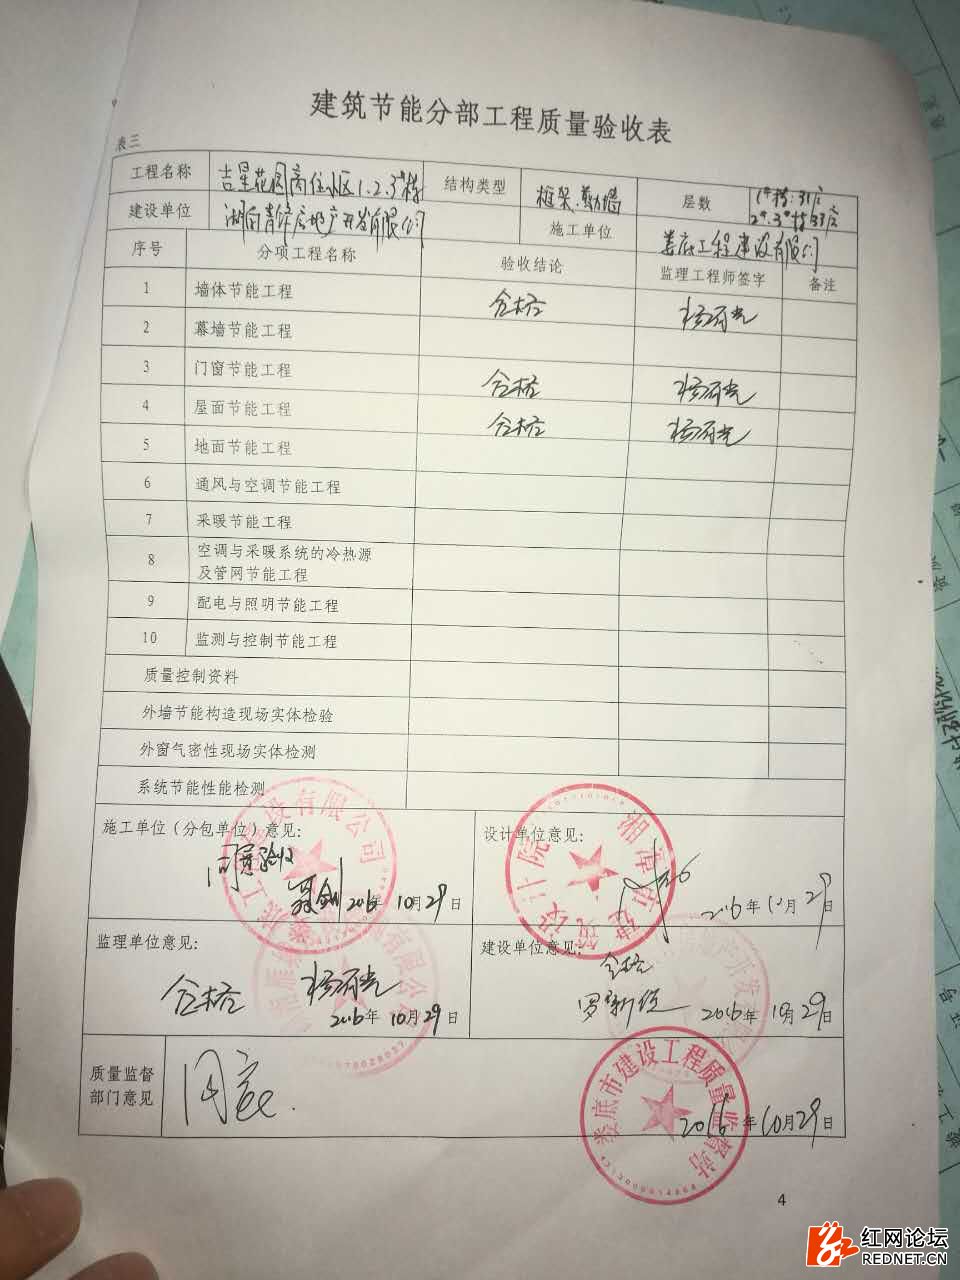 建筑节能分部工程质量验收表
表三
工程名称 吉星花园商住小区1.2.3#栋 结构类型 框架.剪力墙 层数 1#栋:31层
2#.3#栋33层
建设单位 湖南青 房地产开发有限公司 施工单位 娄底工程建设有限公司
序号 分项工程名称 验收结论 监理工程师签字 备注
1 墙体节能工程 合格
2 幕墙节能工程
3 门窗节能工程 合格
4 屋面节能工程 合格
5 地面节能工程
6 通风与空调节能工程
7 采暖节能工程
8 空调与采暖系统的冷热源
及管网节能工程
9 配电与照明节能工程
10 监测与控制节能工程
质量控制资料
外墙节能构造现场实体检验
外窗气密性现场实体检测
系统节能性能检测
施工单位（分包单位）意见: 设计单位意见:
同意验收
2016年10月29日 2016年10月29日
湘潭市建筑设计院
监理单位意见: 建设单位意见:
合格 合格
2016年10月29日 罗新 2016年10月29日
质量监督
部门意见
同意.
娄底市建设工程质量监督站
2016年10月29日
4
红网论坛
REDNET.CN